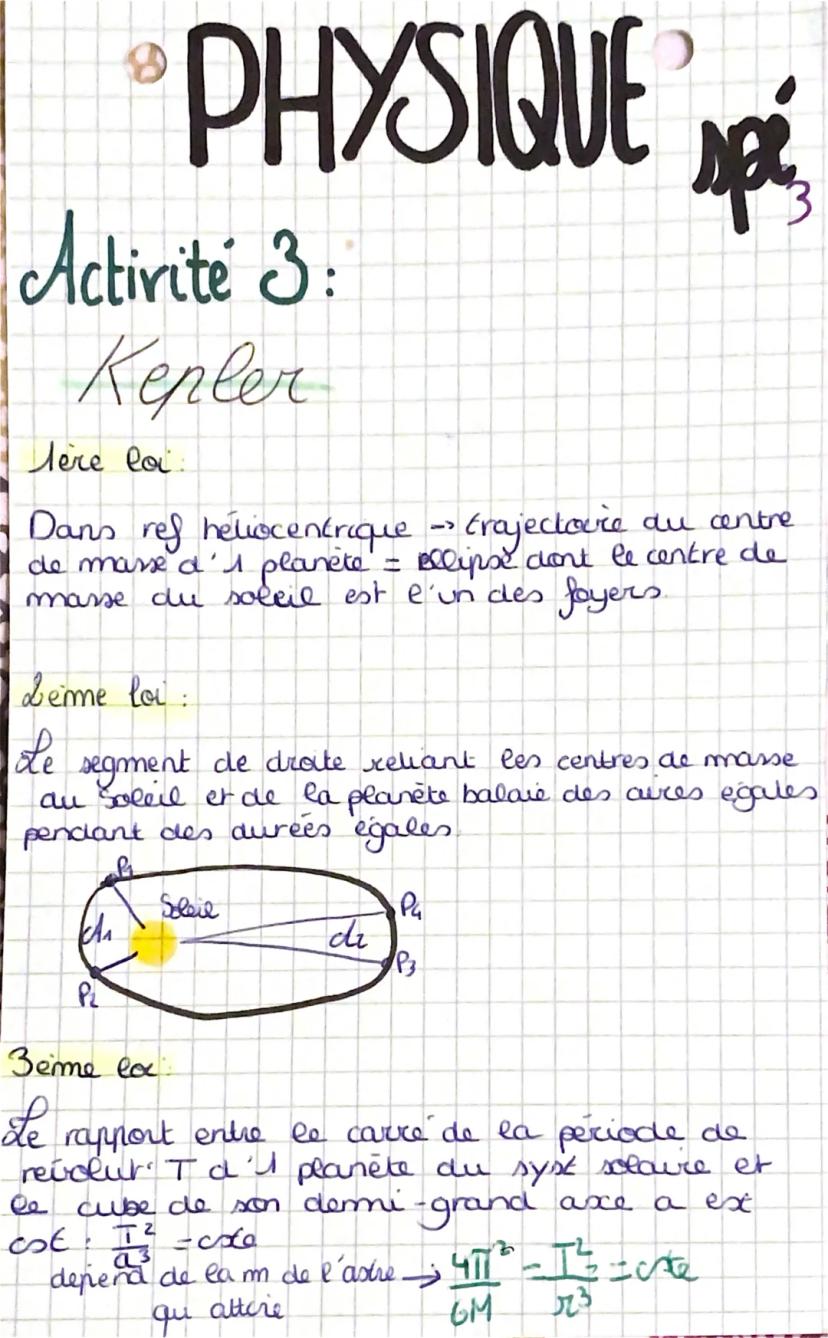 PHYSIQUE
spé
3
Activité 3:
Kepler
1ère loi:
Dans ref héliocentrique → trajectoire du centre
de masse d'1 planète = ellipse dont le centre de
masse du soleil est l'un des foyers
2ème loi:
Le segment de droite reliant les centres de masse
du Soleil et de la planète balaie des aires égales
pendant des durées égales
P1
Soleil
P4
d1
d2
P3
P2
3ème loi:
Le rapport entre le carré de la période de
révolut° T d'1 planète du syst solaire et
le cube de son demi-grand axe a est
cst: T²/a³ = cste
dépend de la m de l'astre → 4π²/GM = T²/r³ = cste
qui attire